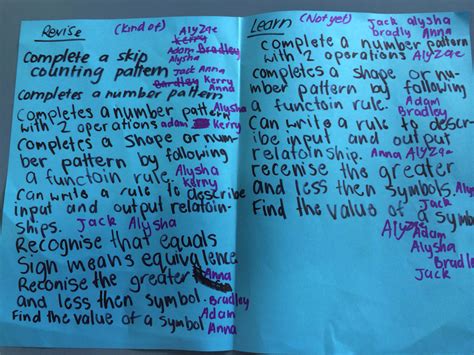 Revise (kind of) AlyZae
Kerry
Complete a skip Adam Bradley
Alysha
counting pattern Jack Anna
Bardley Kerry
Completes a number pattern Anna
Completes a number pattern Alysha
with 2 operations adam Kerry
Completes a shape or num-
ber pattern by following
a functoin rule. Alysha
Kerry
Can write a rule to describe
input and output relatoin-
ships. Jack Alysha
Recognise that equals
Sign means equivalence
Reconise the greater Anna
and less then symbol. Bradley
Find the value of a symbol Adam
Anna
Learn (Not yet) Jack alysha
bradly Anna
complete a number pattern
with 2 operations AlyZae
completes a shape or nu-
mber pattern by following
a functoin rule. Adam
Bradley
Can write a rule to descr-
ibe input and output
relatoinship. Anna AlyZae
recenise the greater
and less then symbols.
Find the value of a symb
AlyZae
Adam
Alysha
Bradle
Jack